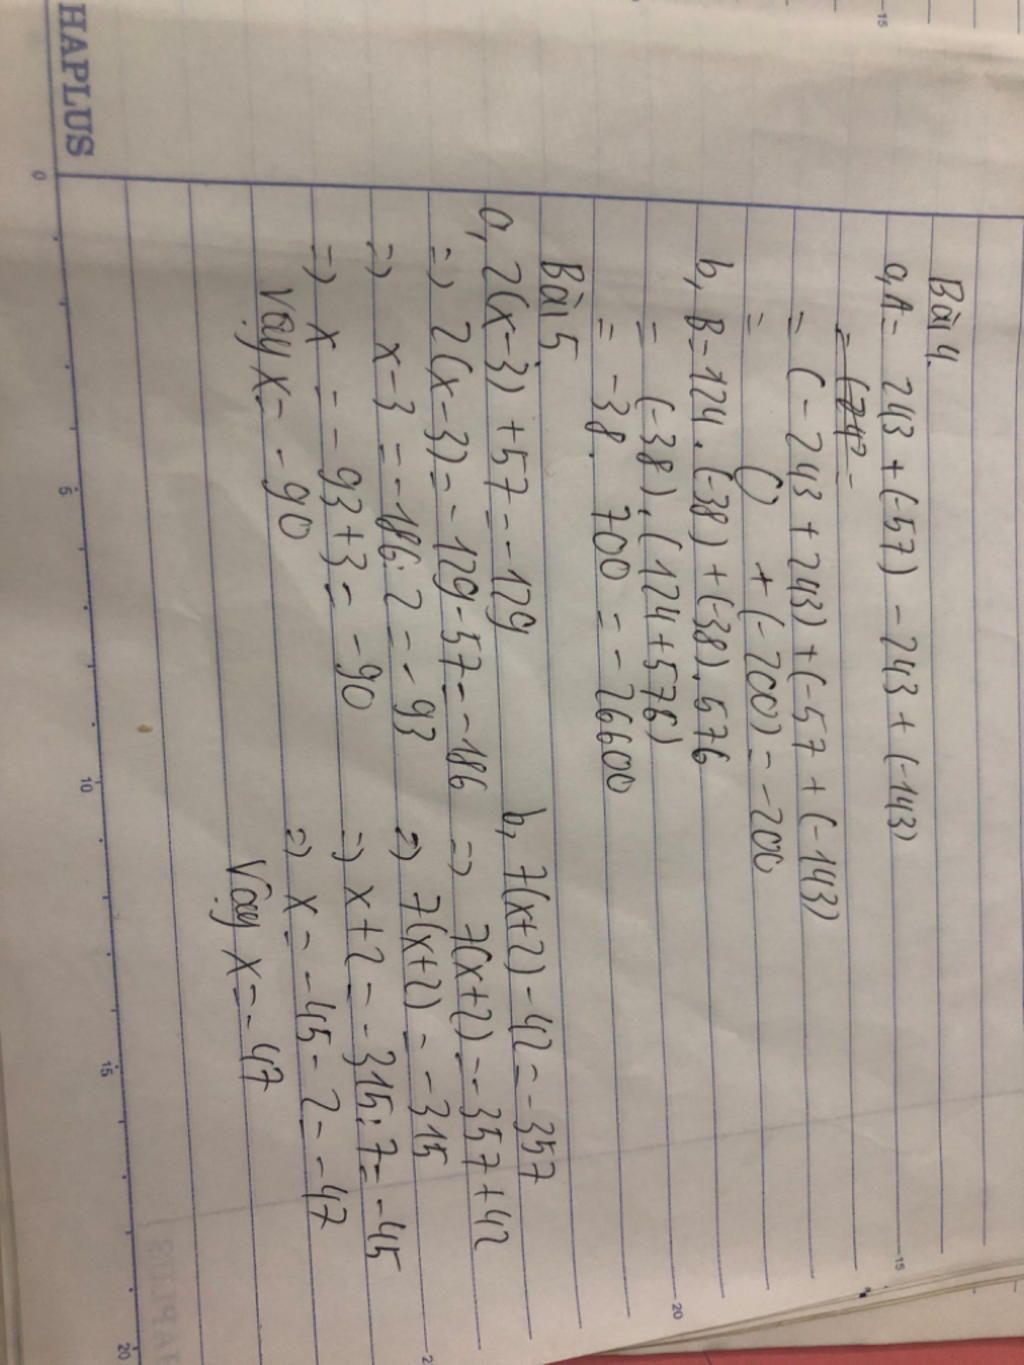 HAPLUS
Bài 4.
a, A = 243 + (-57) - 243 + (-143)
= (-243 + 243) + (-57 + (-143)
= 0 + (-200) = -200
b, B = 124 . (-38) + (-38) . 576
= (-38) . (124 + 576)
= -38 . 700 = -26600
Bài 5
a, 2(x-3) + 57 = -129
=> 2(x-3) = -129 - 57 = -186
=> x-3 = -186 : 2 = -93
=> x = -93 + 3 = -90
Vậy x = -90
b, 7(x+2) - 42 = -357
=> 7(x+2) = -357 + 42
=> 7(x+2) = -315
=> x+2 = -315 : 7 = -45
=> x = -45 - 2 = -47
Vậy x = -47
0 5 10 15 20
15
20
15